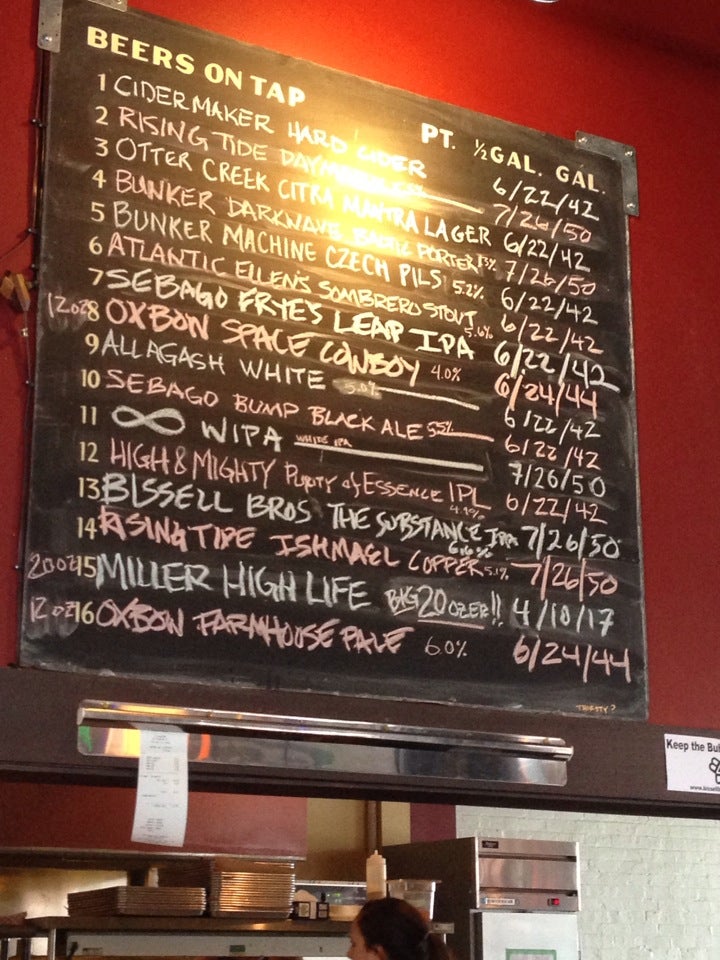 BEERS ON TAP PT. ½ GAL. GAL.
1 CIDERMAKER HARD CIDER 6/22/42
2 RISING TIDE 7/26/50
3 OTTER CREEK CITRA MANTRA LAGER 6/22/42
4 BUNKER DARKWAVE BALTIC PORTER 7/26/50
5 BUNKER MACHINE CZECH PILS 5.2% 6/22/42
6 ATLANTIC ELLEN'S SOMBRERO STOUT 5.6% 6/22/42
7 SEBAGO FRYES LEAP IPA 6/22/42
12oz 8 OXBOW SPACE COWBOY 4.0% 6/24/44
9 ALLAGASH WHITE 5.0% 6/22/42
10 SEBAGO BUMP BLACK ALE 5.5% 6/22/42
11 ∞ WIPA WHITE IPA 7/26/50
12 HIGH & MIGHTY PURITY of ESSENCE IPL 4.9% 6/22/42
13 BISSELL BROS THE SUBSTANCE IPA 6.6% 7/26/50
14 RISING TIDE ISHMAEL COPPER 5.1% 7/26/50
20oz 15 MILLER HIGH LIFE BIG 20 OZER!! 4/10/17
12oz 16 OXBOW FARMHOUSE PALE 6.0% 6/24/44
THIRSTY?
Keep the